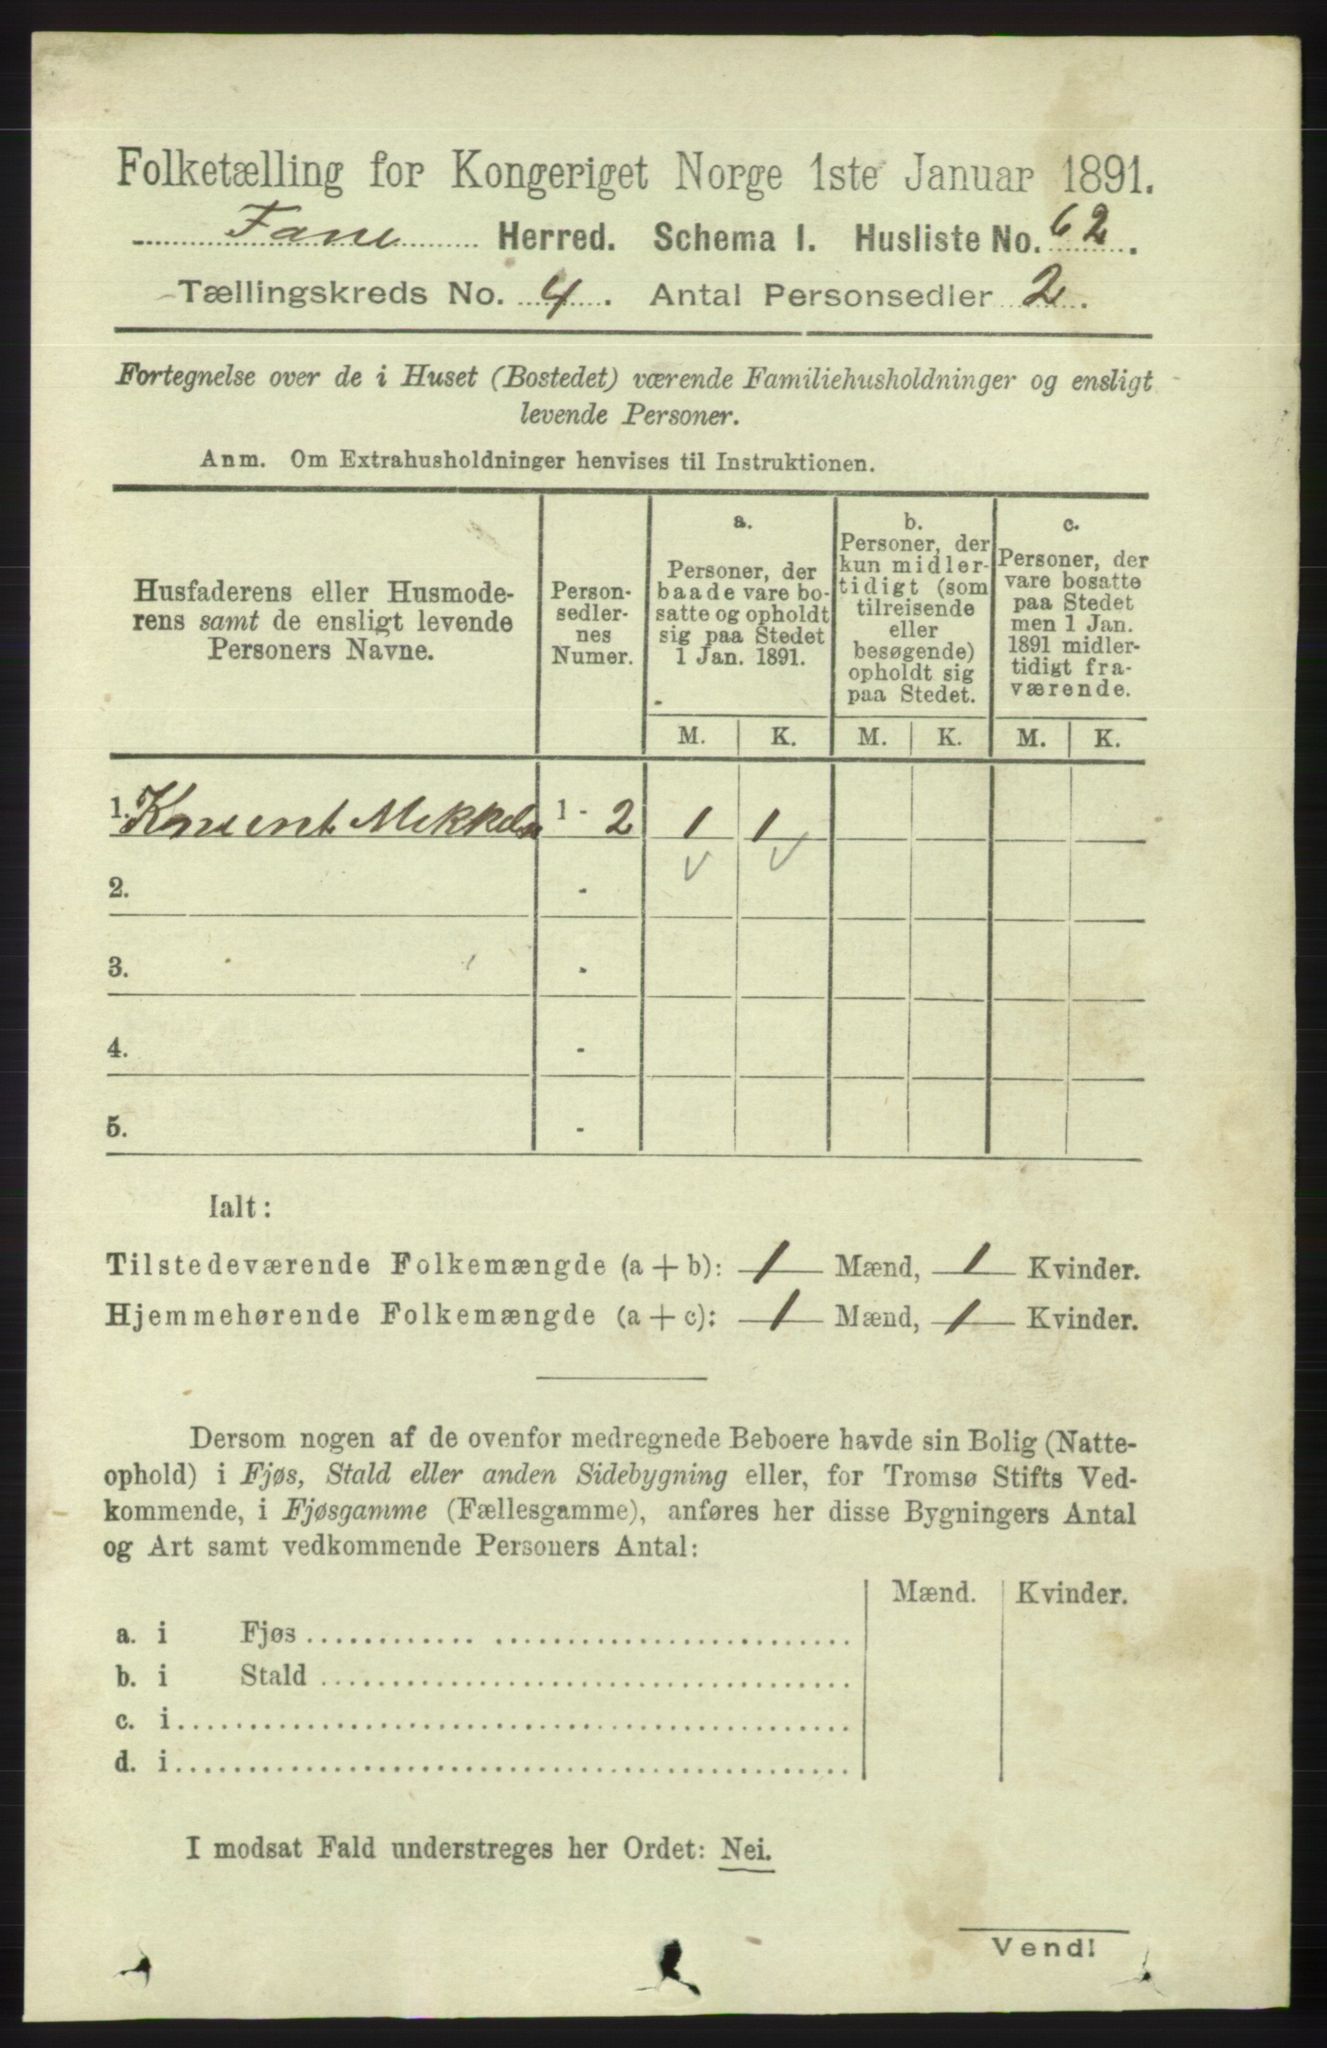 Folketælling for Kongeriget Norge 1ste Januar 1891.
Fane Herred. Schema I. Husliste No. 62.
Tællingskreds No. 4. Antal Personsedler 2.
Fortegnelse over de i Huset (Bostedet) værende Familiehusholdninger og ensligt
levende Personer.
Anm. Om Extrahusholdninger henvises til Instruktionen.
Husfaderens eller Husmode-
rens samt de ensligt levende
Personers Navne.
Person-
sedler-
nes
Numer.
a.
Personer, der
baade vare bo-
satte og opholdt
sig paa Stedet
1 Jan. 1891.
b.
Personer, der
kun midler-
tidigt (som
tilreisende
eller
besøgende)
opholdt sig
paa Stedet.
c.
Personer, der
vare bosatte
paa Stedet
men 1 Jan.
1891 midler-
tidigt fra-
værende.
M. K. M. K. M. K.
1. Mekkels 1 - 2 1 1
2. -
3. -
4. -
5. -
Ialt:
Tilstedeværende Folkemængde (a + b): 1 Mænd, 1 Kvinder.
Hjemmehørende Folkemængde (a + c): 1 Mænd, 1 Kvinder.
Dersom nogen af de ovenfor medregnede Beboere havde sin Bolig (Natte-
ophold) i Fjøs, Stald eller anden Sidebygning eller, for Tromsø Stifts Ved-
kommende, i Fjøsgamme (Fællesgamme), anføres her disse Bygningers Antal
og Art samt vedkommende Personers Antal:
Mænd. Kvinder.
a. i Fjøs
b. i Stald
c. i
d. i
I modsat Fald understreges her Ordet: Nei.
Vend!